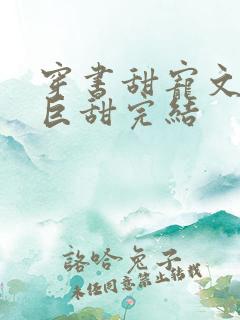 穿書甜寵文
巨甜完結
諮哈兔子
未經同意禁止轉載